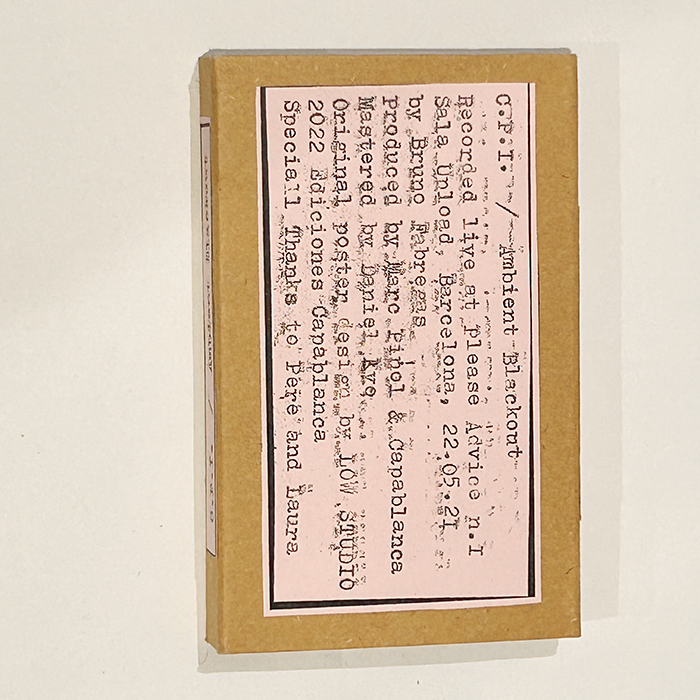 C.P.I. / Ambient Blackout
Recorded live at please Advice n.I
Sala Unload, Barcelona, 22.05.21
by Bruno Fabregas
Produced by Marc Piñol & Capablanca
Mastered by Daniel Eve
Original poster design by LOW STUDIO
2022 Ediciones Capablanca
Speciall Thanks to Pere and Laura